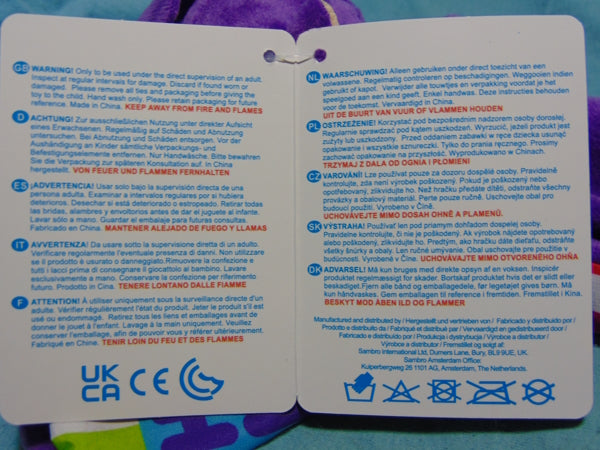 GB WARNING! Only to be used under the direct supervision of an adult.
Inspect at regular intervals for damaged. Discard if found worn or
damaged. Please remove all ties and packaging before giving the
toy to the child. Hand wash only. Please retain packaging for future
reference. Made in China. KEEP AWAY FROM FIRE AND FLAMES
D ACHTUNG! Zur ausschließlichen Nutzung unter direkter Aufsicht
eines Erwachsenen. Regelmäßig auf Schäden und Abnutzung
untersuchen. Bei Abnutzung und Schäden entsorgen. Vor der
Aushändigung an Kinder sämtliche Verpackungs- und
Befestigungselemente entfernen. Nur Handwäsche. Bitte bewahren
Sie die Verpackung zur späteren Konsultation auf. In China
hergestellt. VON FEUER UND FLAMMEN FERNHALTEN
ES ¡ADVERTENCIA! Usar solo bajo la supervisión directa de una
persona adulta. Examinar a intervalos regulares por si hubiera
deterioros. Desechar si está deteriorado o estropeado. Retirar todas
las bridas, alambres y envoltorios antes de dar el juguete al infante.
Lavar sólo a mano. Guardar el embalaje para futuras consultas.
Fabricado en China. MANTENER ALEJADO DE FUEGO Y LLAMAS
IT AVVERTENZA! Da usare sotto la supervisione diretta di un adulto.
Verificare regolarmente l'eventuale presenza di danni. Non utilizzare
se il prodotto è usurato o danneggiato.Rimuovere la confezione e
tutti i lacci prima di consegnare il giocattolo al bambino. Lavare
esclusivamente a mano. Conservare la confezione per riferimento
futuro. Prodotto in Cina. TENERE LONTANO DALLE FIAMME
F ATTENTION! À utiliser uniquement sous la surveillance directe d'un
adulte. Vérifier régulièrement l'état du produit. Jeter le produit s'il est
usé ou endommagé. Retirez tous les liens et emballages avant de
donner le jouet à l'enfant. Lavage à la main uniquement. Veuillez
conserver l'emballage, afin de pouvoir vous y référer ultérieurement.
Fabriqué en Chine. TENIR LOIN DU FEU ET DES FLAMMES
UK
CA CE
NL WAARSCHUWING! Alleen gebruiken onder direct toezicht van een
volwassen. Regelmatig controleren op beschadigingen. Weggooien indien
gebruikt of kapot. Verwijder alle touwtjes en verpakking voordat je het
speelgoed aan een kind geeft. Enkel handwas. Deze instructies behouden
voor de toekomst. Vervaardigd in China.
UIT DE BUURT VAN VUUR OF VLAMMEN HOUDEN
PL OSTRZEŻENIE! Korzystać pod bezpośrednim nadzorem osoby dorosłej.
Regularnie sprawdzać pod kątem uszkodzeń. Wyrzucić, jeżeli produkt jest
zużyty lub uszkodzony. Przed oddaniem zabawki w ręce dziecka usunąć
opakowanie i wszystkie sznureczki. Tylko do prania ręcznego. Prosimy
zachować opakowanie na przyszłość. Wyprodukowano w Chinach.
TRZYMAJ Z DALA OD OGNIA I PŁOMIENI
CZ VAROVÁNÍ! Lze používat pouze za dozoru dospělé osoby. Pravidelně
kontrolujte, zda není výrobek poškozený. Pokud je opotřebovaný nebo
poškozený, zlikvidujte ho. Než hračku předáte dítěti, odstraňte všechny
provázky a obalový materiál. Perte pouze ručně. Uschovejte obal pro
budoucí použití. Vyrobeno v Číně.
UCHOVÁVEJTE MIMO DOSAH OHNĚ A PLAMENŮ.
SK VÝSTRAHA! Používať len pod priamym dohľadom dospelej osoby.
Pravidelne kontrolujte, či nie je poškodený. Ak výrobok nájdete opotrebovaný
alebo poškodený, zlikvidujte ho. Predtým, ako hračku dáte dieťaťu, odstráňte
všetky šnúrky a obaly. Len ručné umývanie. Obal uschovajte pre použitie v
budúcnosti. Vyrobené v Číne. UCHOVÁVAJTE MIMO OTVORENÉHO OHŇA
DK ADVARSEL! Må kun bruges med direkte opsyn af en voksen. Inspicér
produktet regelmæssigt for skader. Bortskaf produktet hvis det er slidt eller
beskadiget.Fjern alle bånd og emballagedele, før legetøjet gives børn. Må
kun håndvaskes. Gem emballagen til reference i fremtiden. Fremstillet i Kina.
BESKYT MOD ÅBEN ILD OG FLAMMER
Manufactured and distributed by / Hergestellt und vertrieben von / Fabricado y distribuido por /
Prodotto e distribuito da / Fabriqué et distribué par / Vervaardigd en gedistribueerd door /
Fabricado e distribuido por / Produkcja i dystrybucja / Výrobce a distributor /
Výrobce a distributor / Fremstillet og solgt af:
Sambro International Ltd, Dumers Lane, Bury, BL9 9UE, UK.
Sambro Amsterdam Office:
Kuiperbergweg 26 1101 AG, Amsterdam, The Netherlands.